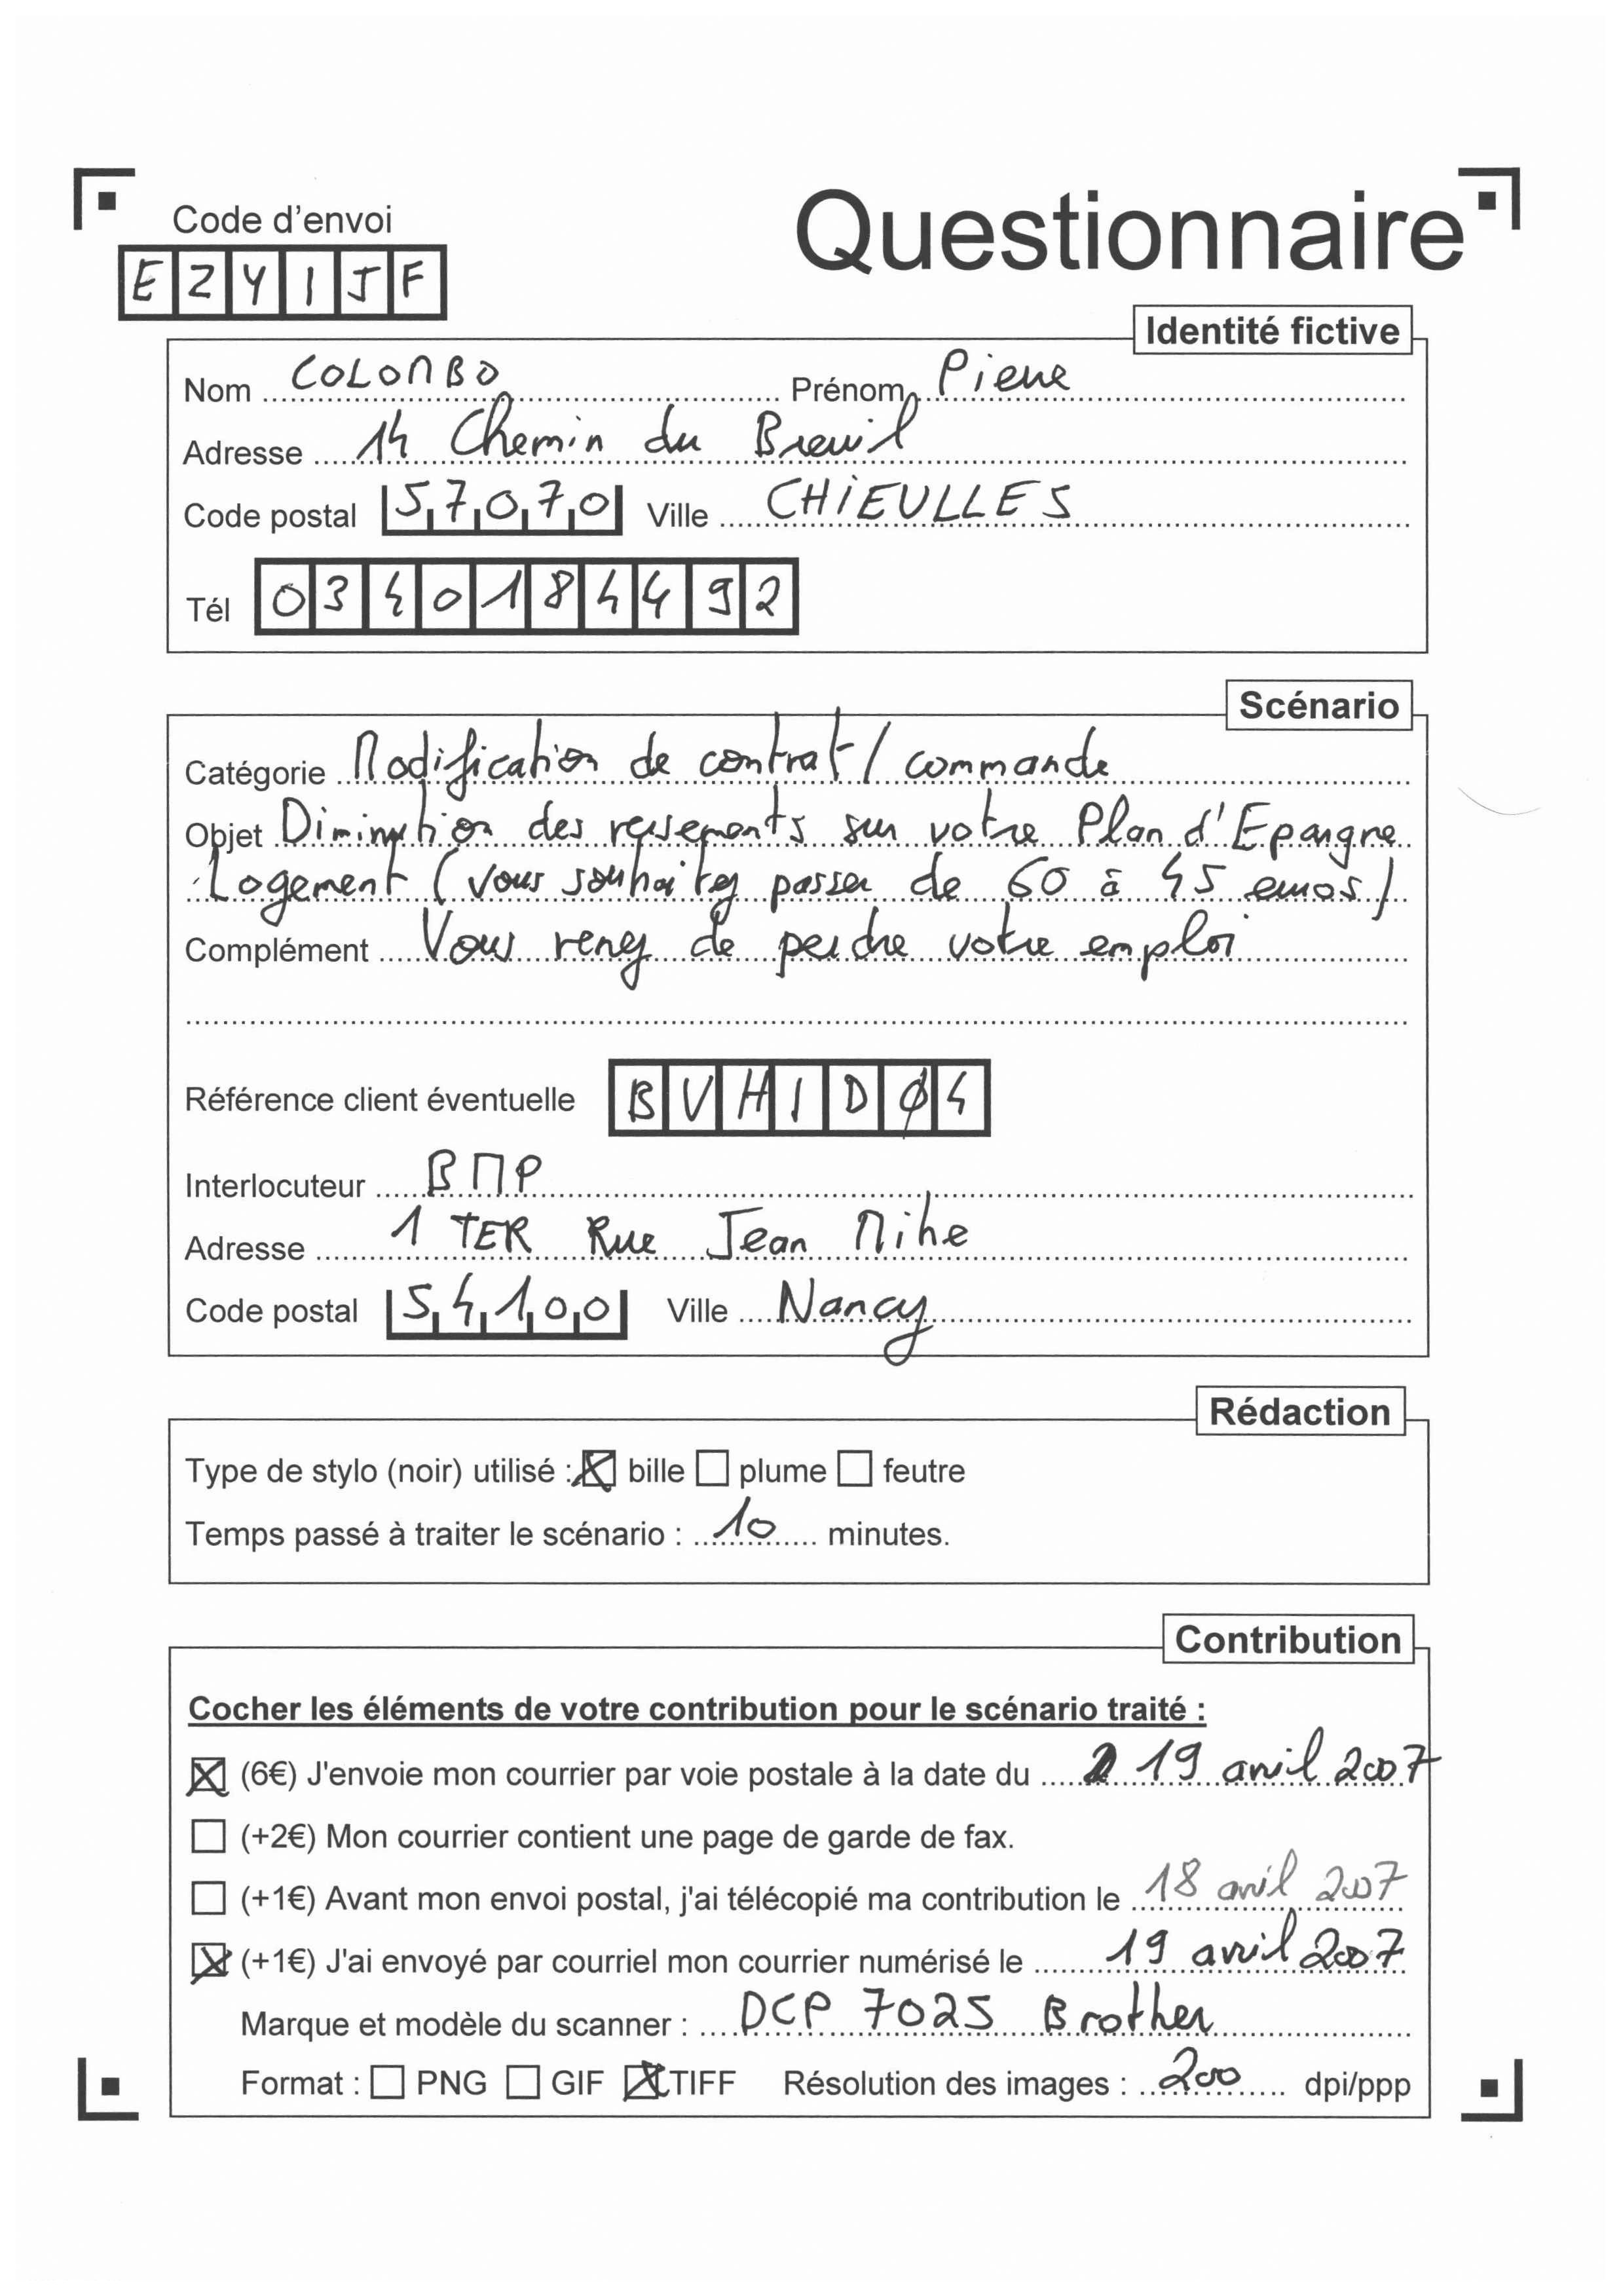 Code d'envoi
EZYIJF
Questionnaire
Identité fictive
Nom COLOMBO Prénom Pierre
Adresse 14 Chemin du Breuil
Code postal 57070 Ville CHIEULLES
Tél 0340184492
Scénario
Catégorie Modification de contrat / commande
Objet Diminution des versements sur votre Plan d'Epargne
Logement (vous souhaitez passer de 60 à 45 euros)
Complément Vous venez de perdre votre emploi
Référence client éventuelle BVHID04
Interlocuteur BMP
Adresse 1 TER Rue Jean Mihe
Code postal 54100 Ville Nancy
Rédaction
Type de stylo (noir) utilisé : bille plume feutre
Temps passé à traiter le scénario : 10 minutes.
Contribution
Cocher les éléments de votre contribution pour le scénario traité :
(6€) J'envoie mon courrier par voie postale à la date du 19 avril 2007
(+2€) Mon courrier contient une page de garde de fax.
(+1€) Avant mon envoi postal, j'ai télécopié ma contribution le 18 avril 2007
(+1€) J'ai envoyé par courriel mon courrier numérisé le 19 avril 2007
Marque et modèle du scanner : DCP 7025 Brother
Format : PNG GIF TIFF Résolution des images : 200 dpi/ppp